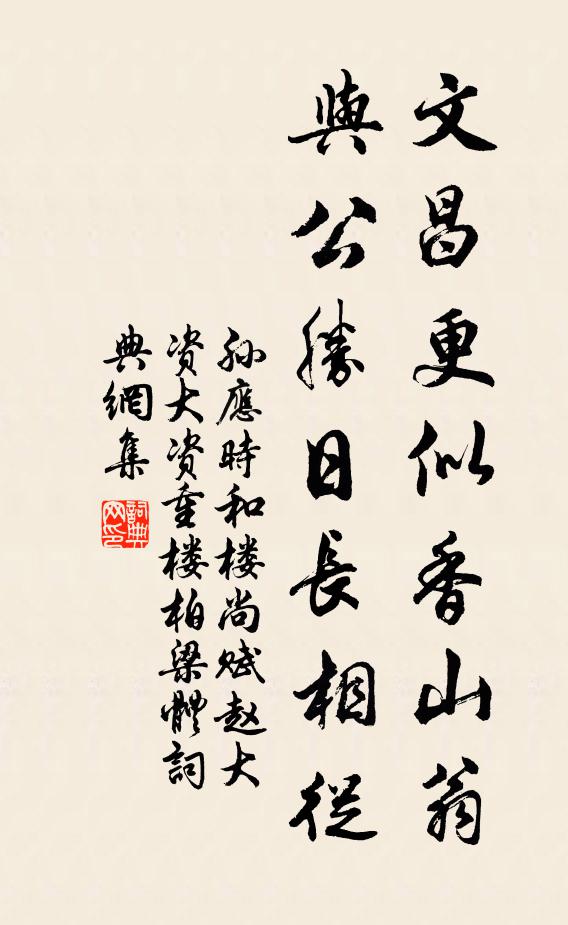 文昌更似香山翁
與公勝日長相從
孙應時和楼尚赋赵大
资大资重楼柏梁體詞
典網集
詞典网印